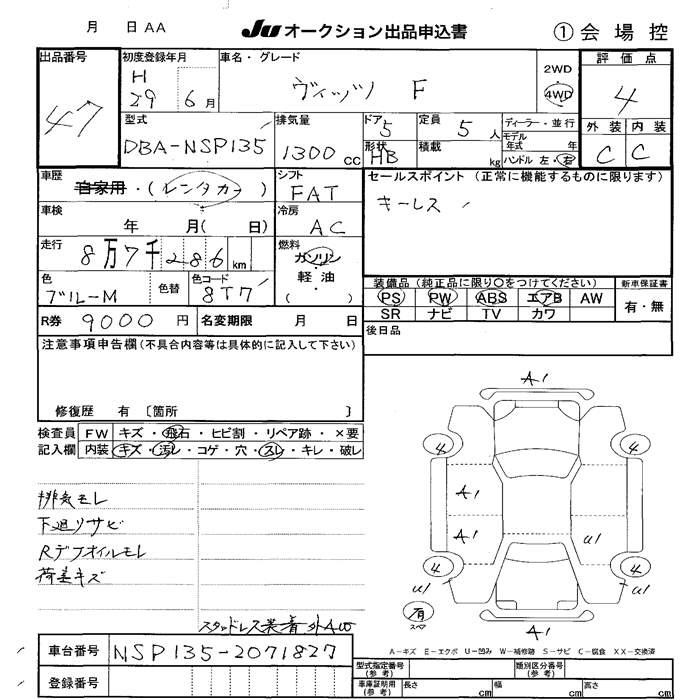 月 日 AA
JU オークション出品申込書
① 会場控
出品番号
47
初度登録年月
H
29 6 月
車名・グレード
ヴィッツ F
2WD
4WD
評価点
4
外装 内装
C C
型式
DBA-NSP135
排気量
1300 cc
ドア
5
形状
HB
定員
5 人
積載
kg
ディーラー・並行
モデル
年式 年
ハンドル 左・右
車歴
自家用・(レンタカー)
シフト
FAT
セールスポイント (正常に機能するものに限ります)
キーレス
車検
年 月( 日)
冷房
AC
走行
8万7千286 km
燃料
ガソリン
軽・油
( )
色
ブルーM
色替
色コード
8T7
装備品 (純正品に限り〇をつけてください)
PS PW ABS エアB AW
SR ナビ TV カワ
新車保証書
有・無
R券 9000 円
名変期限 月 日
後日品
注意事項申告欄 (不具合内容等は具体的に記入して下さい)
修復歴 有 〔箇所 〕
検査員
記入欄
FW キズ・飛石・ヒビ割・リペア跡・×要
内装 キズ・汚レ・コゲ・穴・スレ・キレ・破レ
排気モレ
下廻リサビ
Rデフオイルモレ
荷差キズ
スタッドレス装着 外AW
A1
4 4
A1
A1 U1
4 4
U1 U1
有
スペア
A1
A-キズ E-エクボ U-凹み W-補修跡 S-サビ C-腐食 XX-交換済
車台番号 NSP135-2071827
登録番号
型式指定番号
(参考)
類別区分番号
(参考)
車庫証明用
(参考)
長さ cm 幅 cm 高さ cm